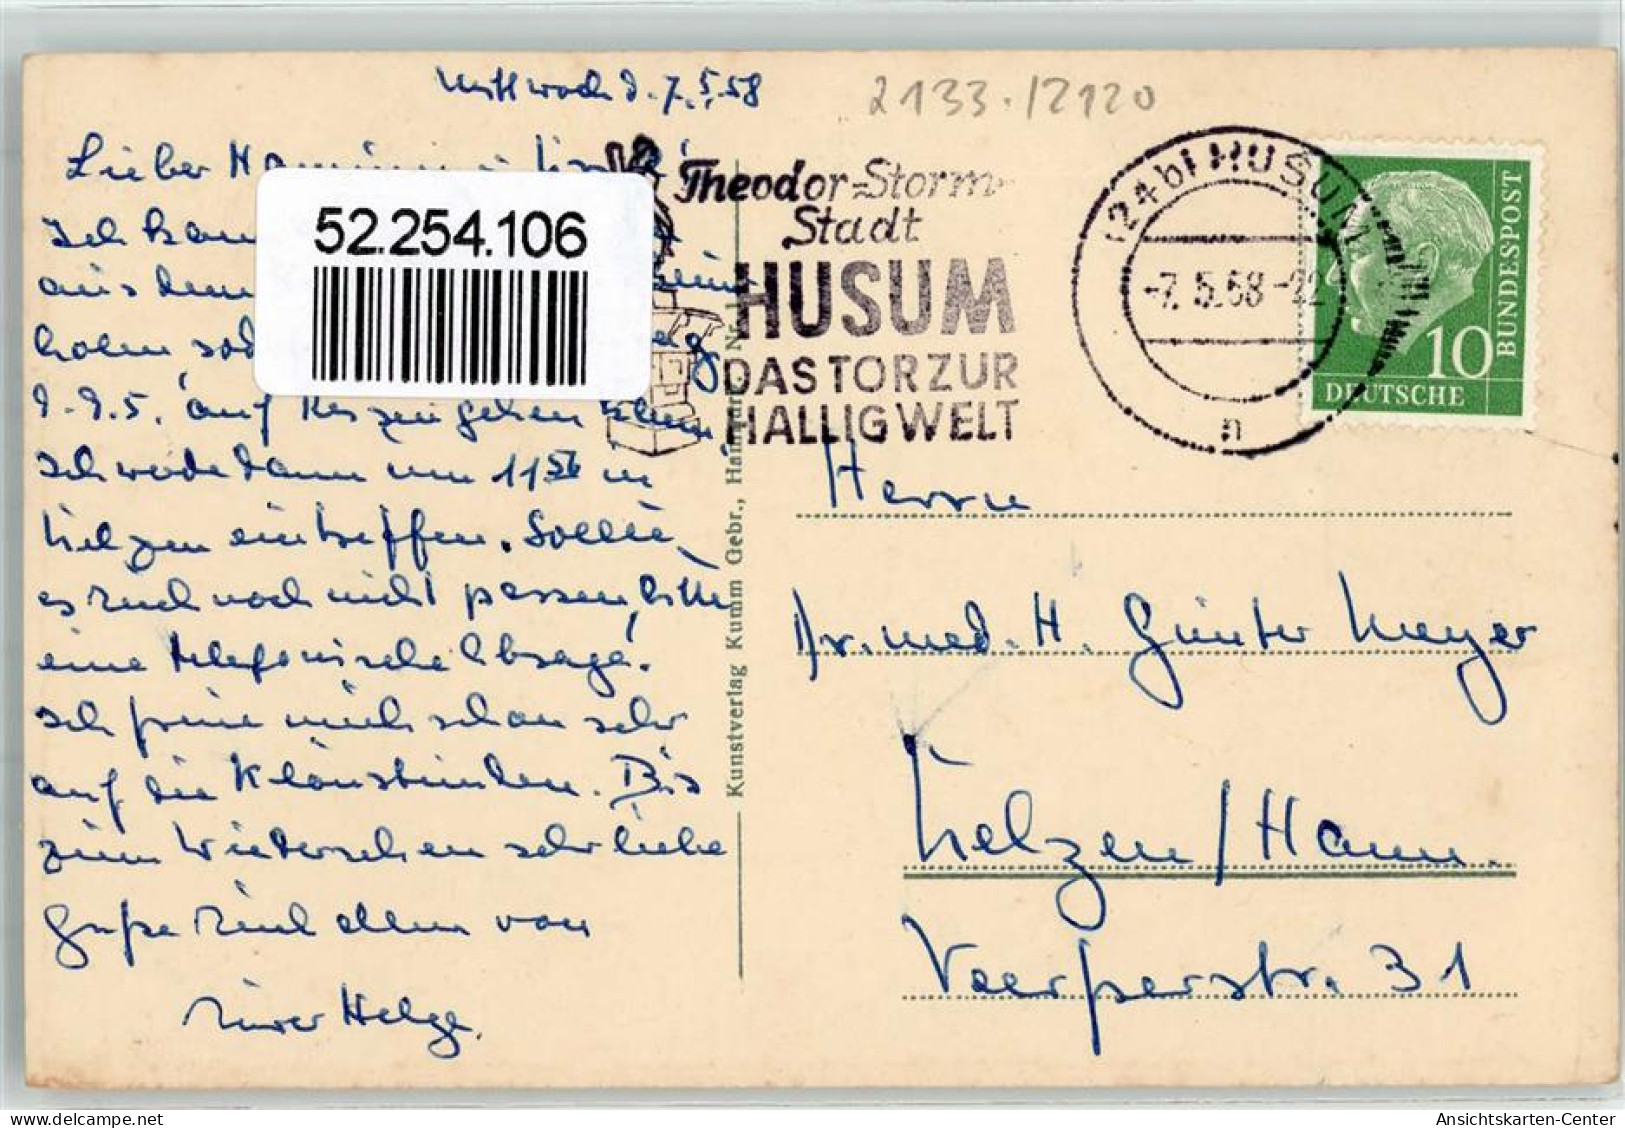 Mittwoch d. 7.5.58
2133./2120
Lieber
Ich kann
aus dem
holen
d. 9.5. auf Reszeugehen kann
Ich werde dann um 11 56 in
Uelzen eintreffen. Sollte
es Euch noch nicht passen, bitte
eine telefonische Absage.
Ich freue mich schon sehr
auf die Klönstunden. Bis
zum Wiedersehen sehr liebe
Grüße Euch allen von
Eurer Helge.
52.254.106
Theodor-Storm-
Stadt
HUSUM
DAS TOR ZUR
HALLIGWELT
(24b) HUSUM
-7.5.58-22
n
10
DEUTSCHE
BUNDESPOST
Kunstverlag Kumm Gebr., Hamburg
Herrn
Dr. med. H. Günter Meyer
Uelzen/Hann.
Veerßerstr. 31
Ansichtskarten-Center